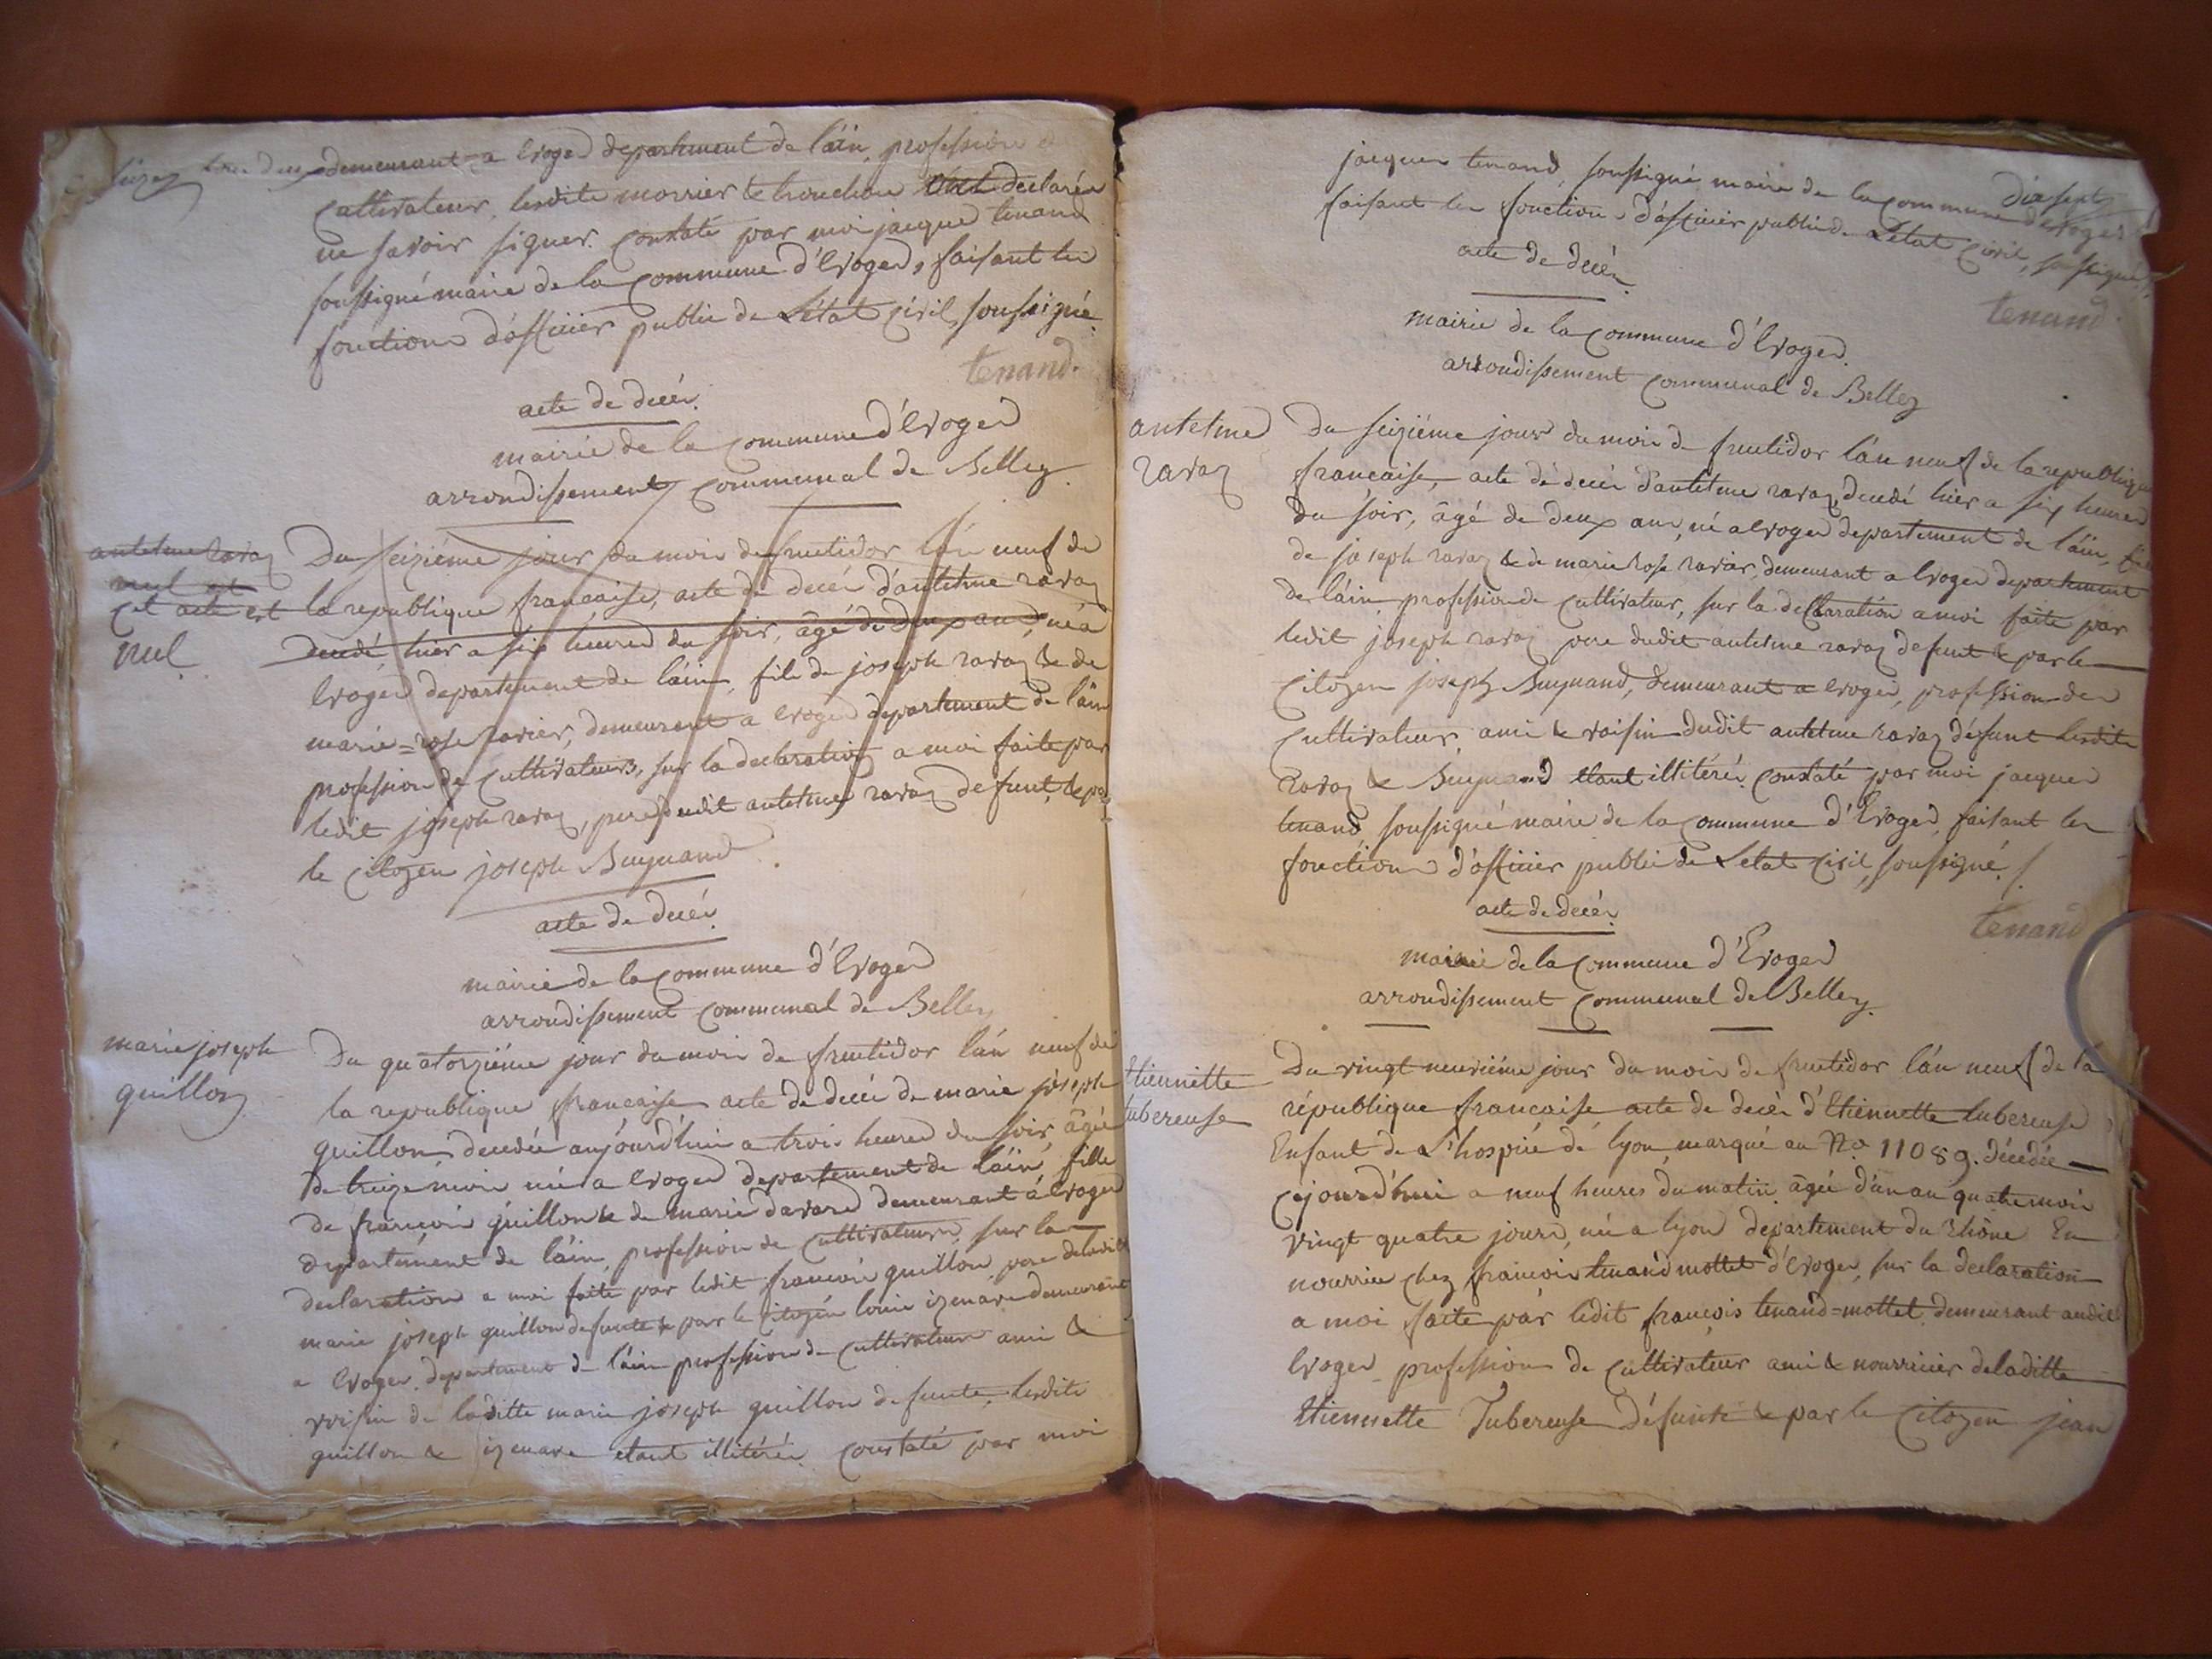 seize
tous deux demeurant a Evoges departement de l'áin, profession de
Cultivateur, lesdits morrier & trouchou ont declarés
ne savoir signer. Constaté par moi jacque tenand
soussigné maire de la Commune d'Evoges, faisant les
fonctions d'officier public de L'état Civil, soussigné.
tenand.
acte de decés.
mairie de la Commune d'Evoges
arrondissement Communal de Belley.
antelme ravaz
nul et
Cet acte est
nul
Du seiziéme jour du mois de fructidor l'án neuf de
la republique francaise, acte de decés d'antelme ravaz
decedé hier a six heures du soir, âgé de deux ans, né á
Evoges departement de l'áin, fils de joseph ravaz & de
marie=rose ravier, demeurant a Evoges departement de l'áin
profession de Cultivateurs, sur la declaration a moi faite par
ledit joseph ravaz, pere dudit antelme ravaz defunt, & par
le Citoyen joseph Buynand.
acte de decés.
mairie de la Commune d'Evoges
arrondissement Communal de Belley
marie joseph
guillon
Du quatorziéme jour du mois de fructidor l'án neuf de
la republique francaise acte de decés de marie joseph
guillon, decedée aujourd'hui a trois heures du soir, âgée
de treize mois née a Evoges departement de l'áin, fille
de francois guillon & de marie davard demeurant á Evoges
departement de l'áin, profession de Cultivateurs, sur la
declaration a moi faite par ledit francois guillon pere de ladite
marie joseph guillon defunte & par le Citoyen louis izenare demeurant
a Evoges departement de l'áin profession de Cultivateur ami &
voisin de laditte marie joseph guillon defunte, lesdits
guillon & izenare etant illitérés. Constaté par moi
dix sept
jacques tenand, soussigné maire de la Commune d'Evoges
faisant les fonctions d'officier public de L'état Civil, soussigné.
tenand.
acte de decés.
mairie de la Commune d'Evoges.
arrondissement Communal de Belley
antelme
ravaz
Du seiziéme jour du mois de fructidor l'án neuf de la republique
francaise, acte de decés d'antelme ravaz, decedé hier a six heures
du soir, âgé de deux ans, né a Evoges departement de l'áin, fils
de joseph ravaz & de marie rose ravier, demeurant a Evoges departement
de l'áin, profession de Cultivateur, sur la declaration a moi faite par
ledit joseph ravaz pere dudit antelme ravaz defunt & par le
Citoyen joseph Buynand, demeurant a Evoges, profession de
Cultivateur, ami & voisin dudit antelme ravaz défunt lesdits
ravaz & Buynand etant illitérés. Constaté par moi jacques
tenand soussigné maire de la Commune d'Evoges, faisant les
fonctions d'officier public de L'etat Civil, soussigné.
tenand
acte de decés.
mairie de la Commune d'Evoges
arrondissement Communal de Belley.
Etiennette
tubereuse
Du vingt neuviéme jour du mois de fructidor l'án neuf de la
république francaise, acte de decès d'Etiennette tubereuse
Enfant de L'hospice de lyon, marqué au No. 11089. décédée
Cejourd'hui a neuf heures du matin, âgée d'un an quatre mois
vingt quatre jours, née a lyon departement du Rhône En
nourrice chez françois tenand mottet d'Evoges, sur la declaration
a moi faite par ledit françois tenand=mottet, demeurant audit
Evoges profession de Cultivateur ami & nourricier de laditte
Etiennette Tubereuse Défunte & par le Citoyen jean